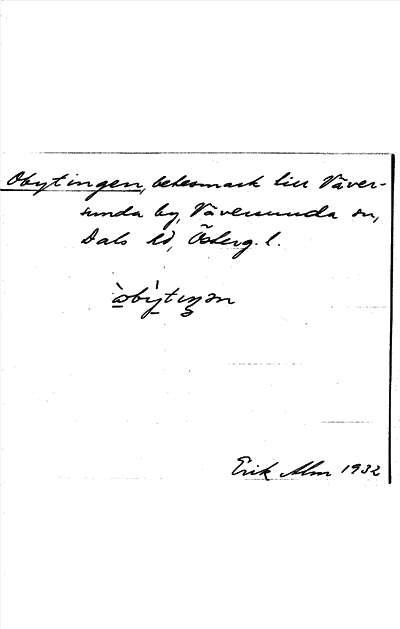 Obytingen, betesmark till Väver-
sunda by, Väversunda sn,
Dals hd, Österg. l.
òbỳtiŋən
Erik Alm 1932